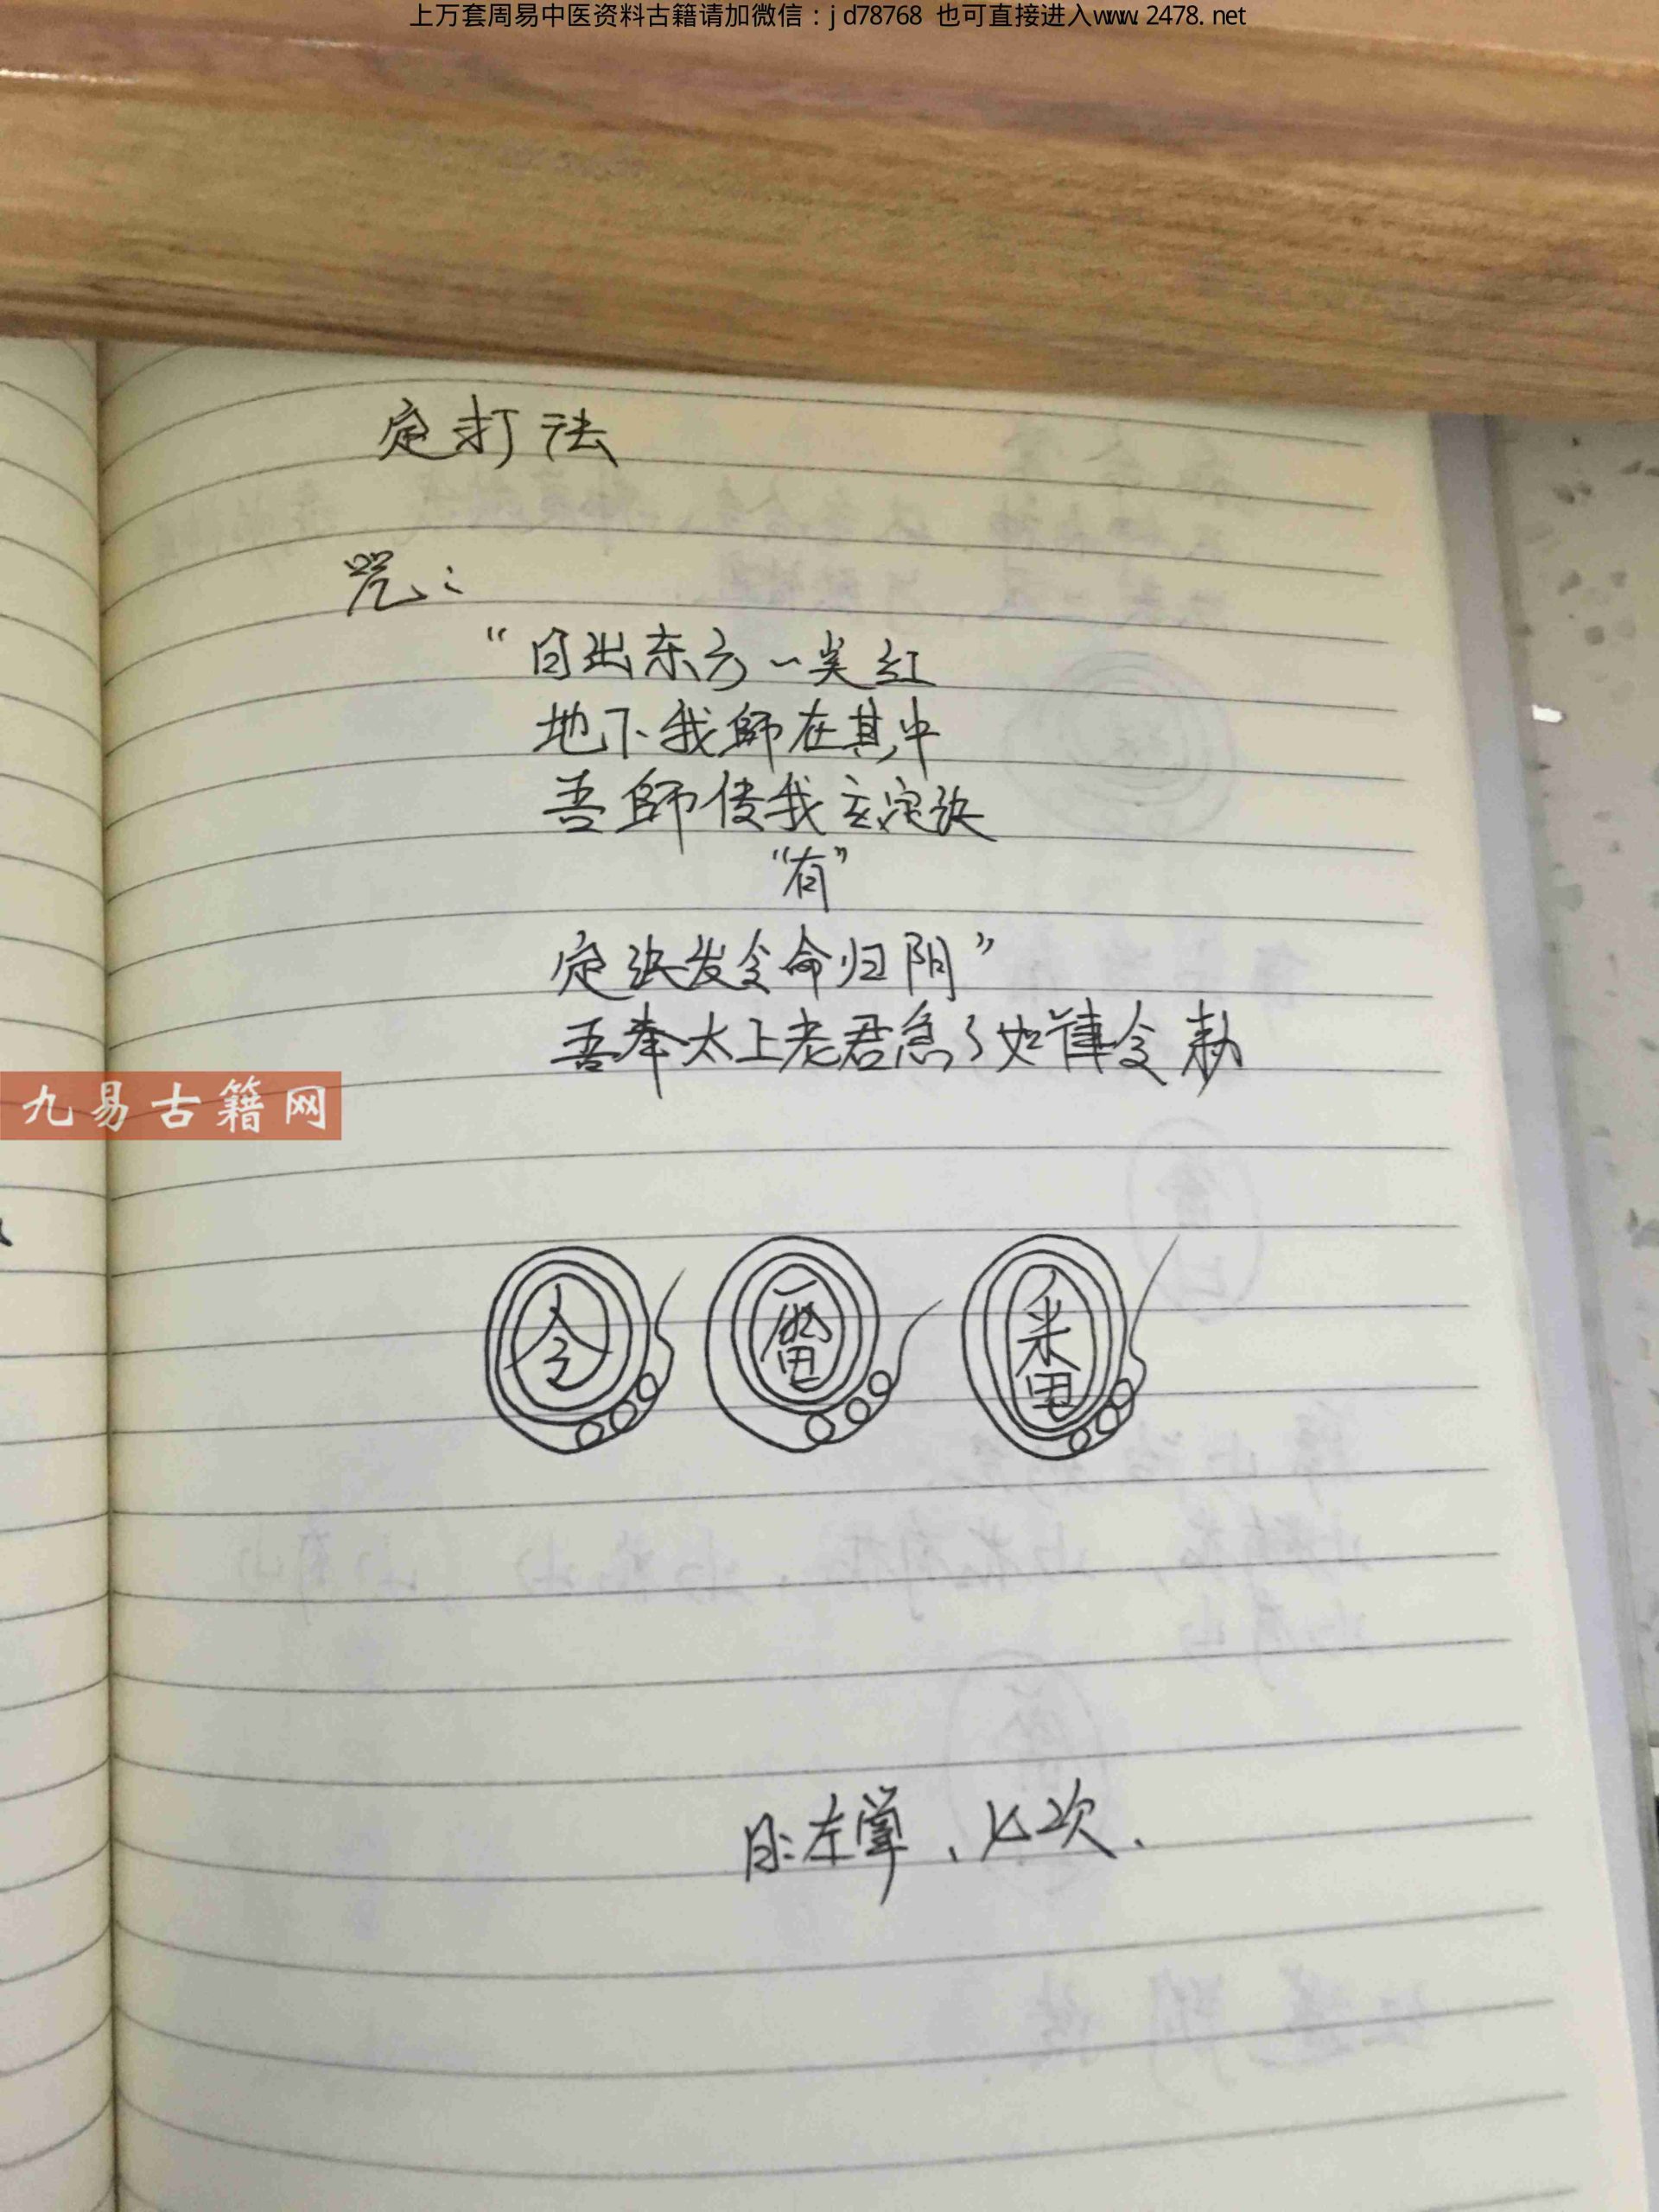 上万套周易中医资料古籍请加微信：jd78768 也可直接进入www.2478.net
定打法
咒：
“日出东方一点红
地下我師在其中
吾師传我立定法
“有”
定法发令命归阴”
吾奉太上老君急々如律令勅
九易古籍网
令
雷
左掌、七次、